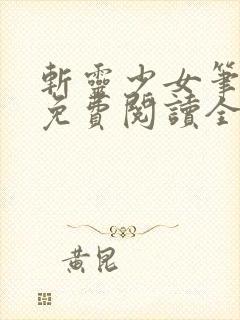 斬靈少女筆
免費閱讀全
黃昆